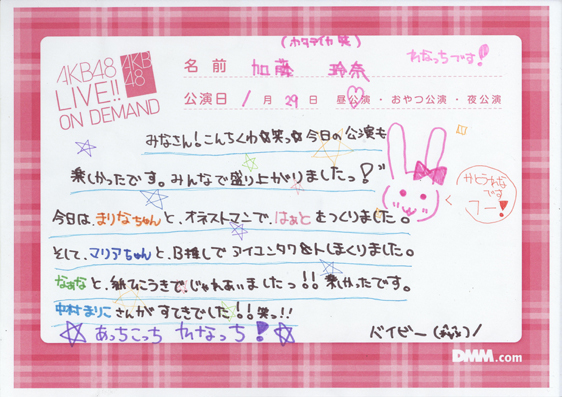 AKB48
LIVE!!
ON DEMAND
AKB
48
(カタイカ笑)
名前 加藤 玲奈
れなっちです!
公演日 1月29日 昼公演・おやつ公演・夜公演
みなさん!こんちくわ☆笑っ☆今日の公演も
楽しかったです。みんなで盛り上がりましたっ!”
今日は、まりなちゃんと、オネストマンで、はぁとをつくりました。
そして、マリアちゃんと、B推しでアイコンタクトしまくりました。
なぁなと、紙ひこうきで、じゃれあいましたっ!!楽しかったです。
中村まりこさんがすてきでした!!笑っ!!
☆あっちこっち れなっち!☆
ベイビー
です
DMM.com